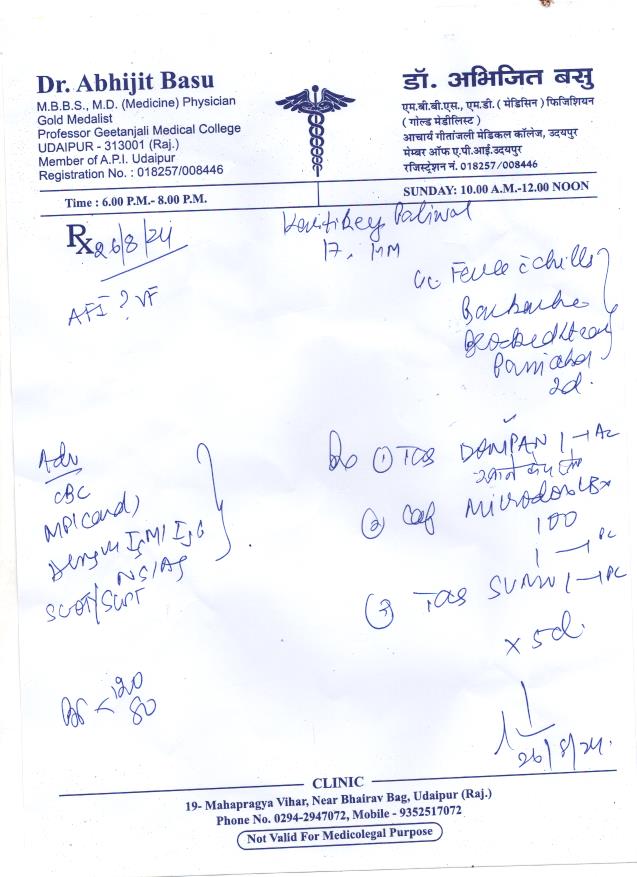 Dr. Abhijit Basu
M.B.B.S., M.D. (Medicine) Physician
Gold Medalist
Professor Geetanjali Medical College
UDAIPUR - 313001 (Raj.)
Member of A.P.I. Udaipur
Registration No. : 018257/008446
डॉ. अभिजित बसु
एम.बी.बी.एस., एम.डी. ( मेडिसिन ) फिजिशियन
( गोल्ड मेडीलिस्ट )
आचार्य गीतांजली मेडिकल कॉलेज, उदयपुर
मेम्बर ऑफ ए.पी.आई.उदयपुर
रजिस्ट्रेशन नं. 018257/008446
Time : 6.00 P.M.- 8.00 P.M.
SUNDAY: 10.00 A.M.-12.00 NOON
Rx 26/8/24
Paliwal
17,
AFI ? VF
c/c Fever c chills
Bodyache
2d.
Adv
CBC
MP (card)
Dengue IgM/IgG
NS1Ag
SGOT/SGPT
BP < 120
80
Rx ① TAB DOMPAN 1 → AC
② Cap Microdox LBx
100
1 → PC
③ TAB SUMO 1 → PC
x 5d.
26/8/24.
CLINIC
19- Mahapragya Vihar, Near Bhairav Bag, Udaipur (Raj.)
Phone No. 0294-2947072, Mobile - 9352517072
Not Valid For Medicolegal Purpose